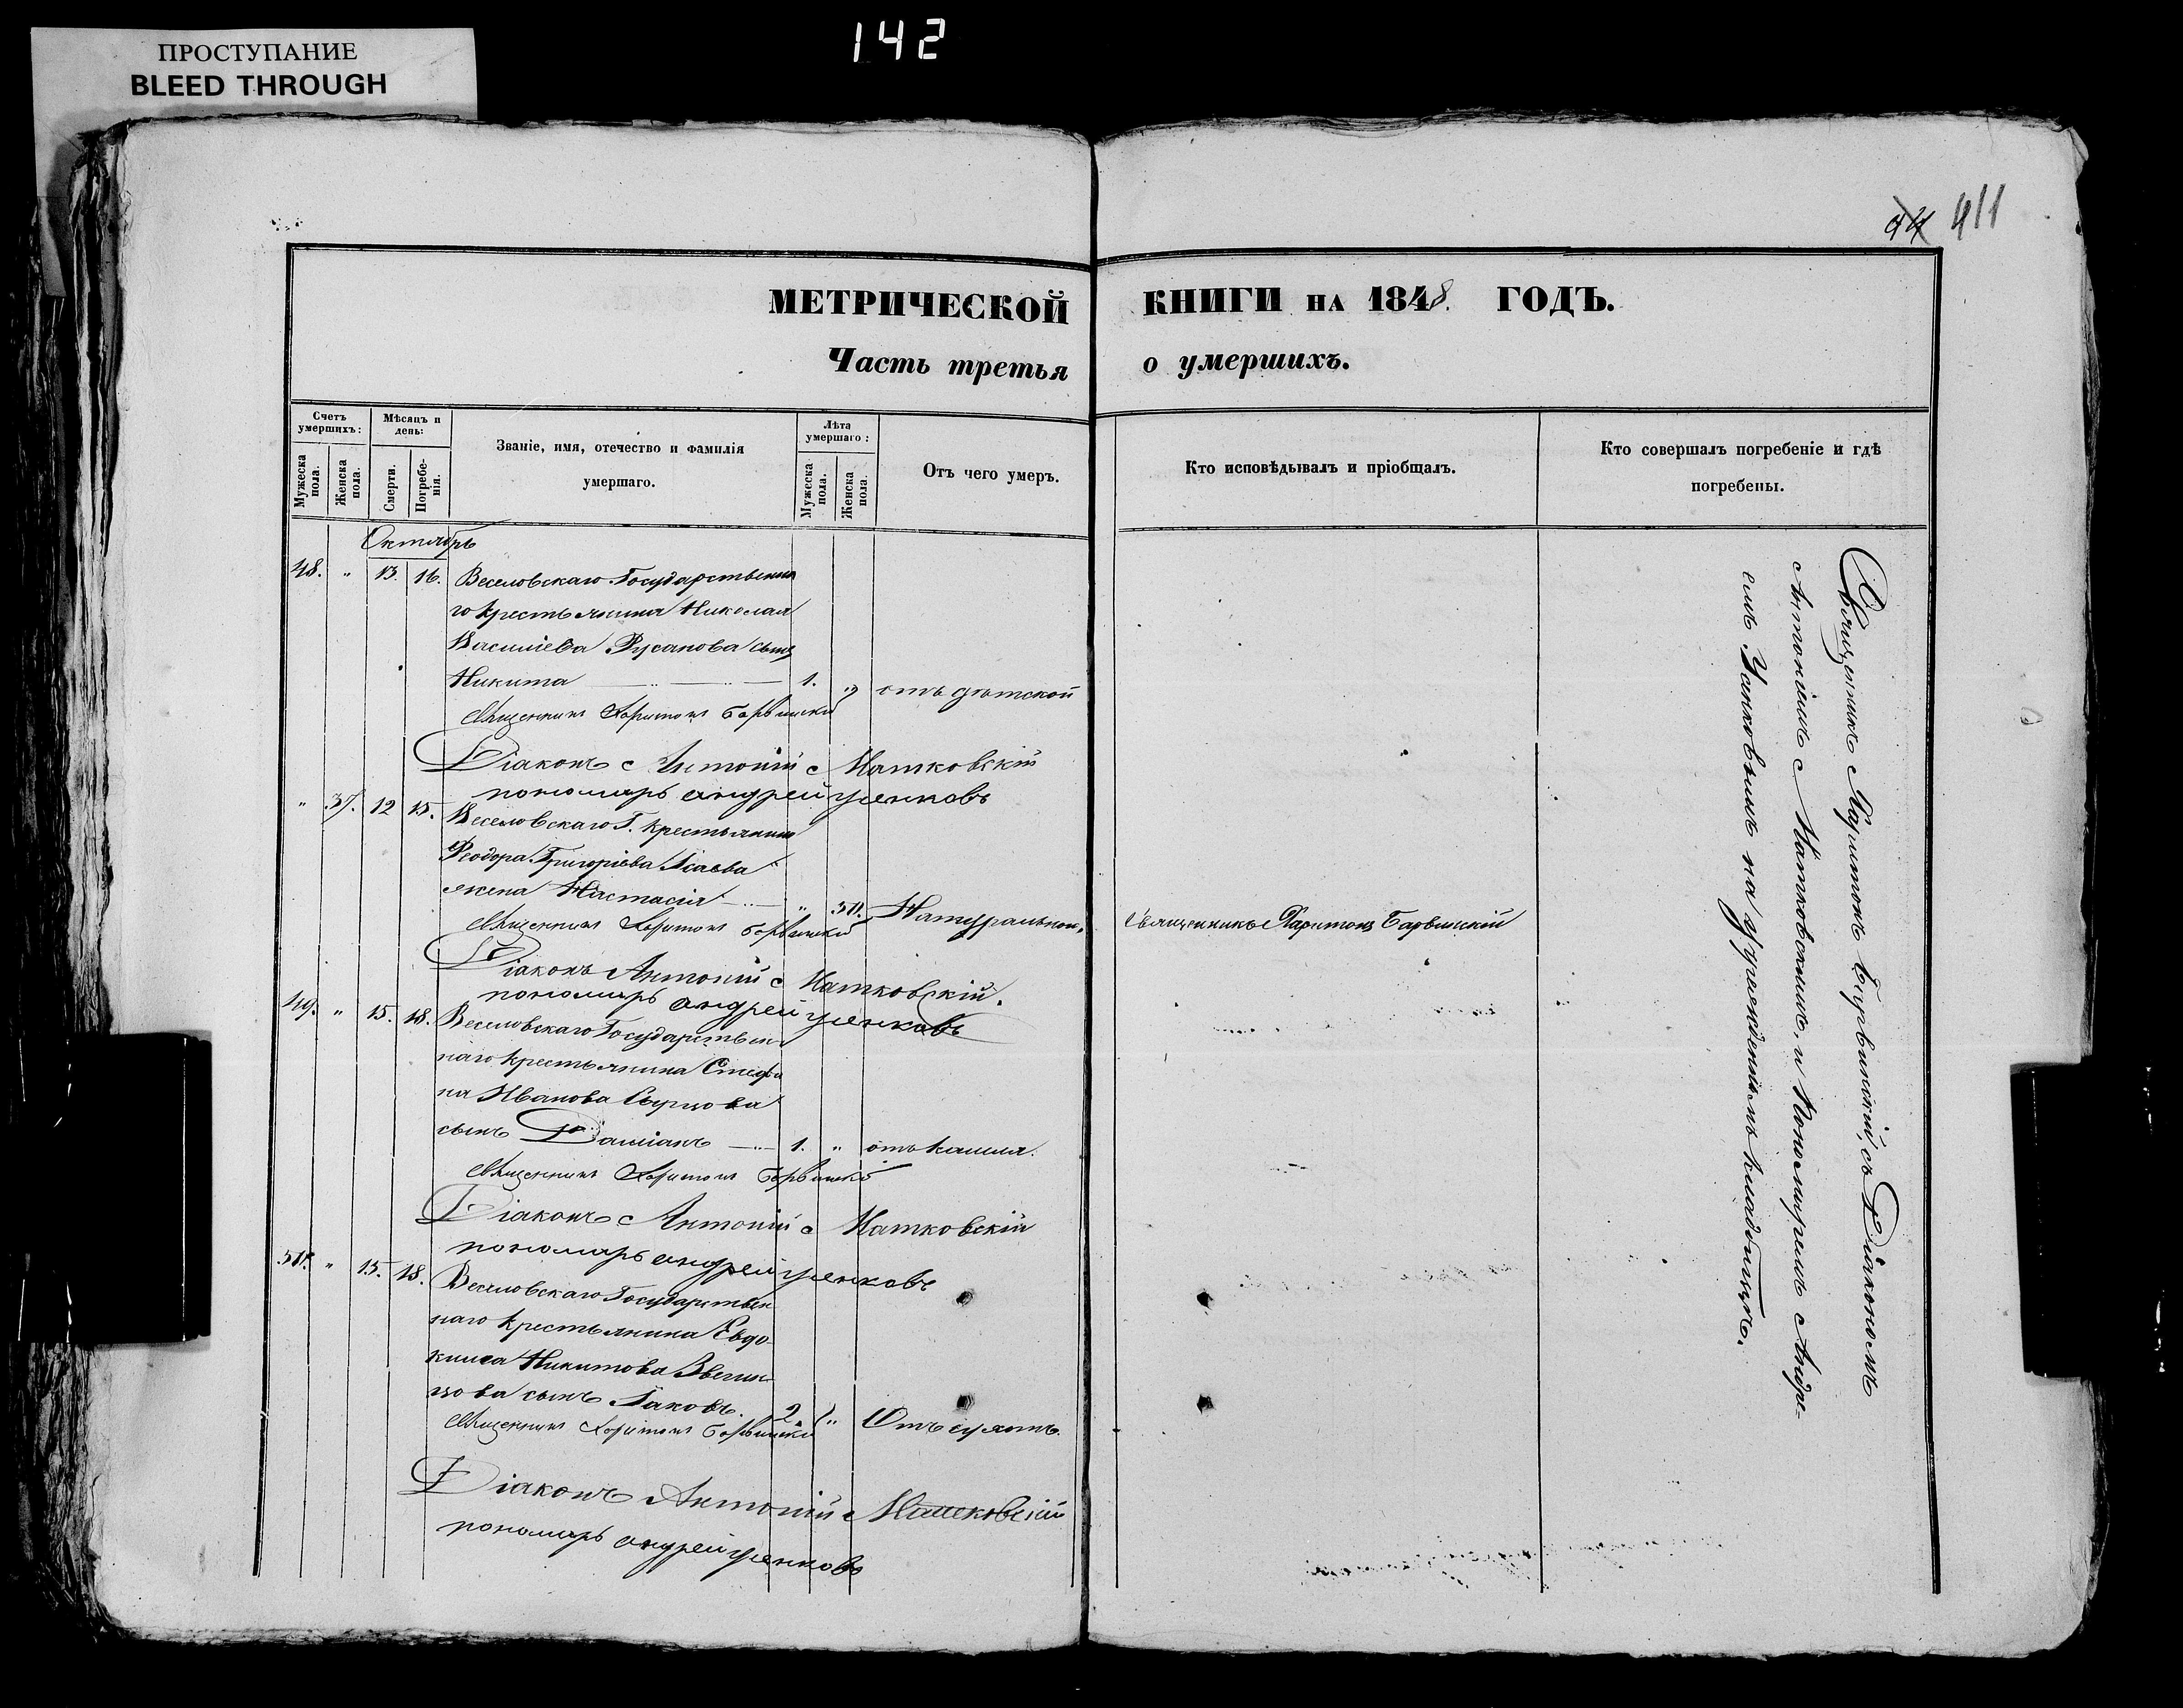 142
ПРОСТУПАНИЕ
BLEED THROUGH
44 411
МЕТРИЧЕСКОЙ КНИГИ НА 1848. ГОДЪ.
Часть третья о умершихъ.
Счетъ умершихъ:
Мужеска пола.
Женска пола.
Мѣсяцъ и день:
Смерти.
Погребенія.
Званіе, имя, отечество и фамилія
умершаго.
Лѣта умершаго:
Мужеска пола.
Женска пола.
Отъ чего умеръ.
Кто исповѣдывалъ и пріобщалъ.
Кто совершалъ погребеніе и гдѣ
погребены.
Октябрь
48. " 13. 16. Веселовскаго Государственна
го крестьянина Николая
Василіева Русанова сынъ
Никита 1. " отъ дѣтской
Священникъ Харитонъ Барвинскій
Діаконъ Антоній Матковскій
пономарь андрей усенковъ
" 37. 12 15. Веселовскаго Г. крестьянина
Феодора Григоріева Ісаева
жена Настасія " 50. Натуральною. Священникъ Харитонъ Барвинскій
Священникъ Харитонъ Барвинскій
Діаконъ Антоній Матковскій.
пономарь андрей усенковъ
49. " 15. 18. Веселовскаго Государствен
наго крестьянина Стефа
на Иванова
сынъ Даміанъ 1. " отъ кашля.
Священникъ Харитонъ Барвинскій
Діаконъ Антоній Матковскій
пономарь андрей усенковъ
50. " 15. 18. Веселовскаго Государствен
наго крестьянина Евдо
кима Никитова
сынъ Іаковъ. 2. "
Священникъ Харитонъ Барвинскій
Діаконъ Антоній Матковскій
пономарь андрей усенковъ
Священникъ Харитонъ Барвинскій съ Діакономъ
Антоніемъ Матковскимъ, и Пономаремъ Андре-
емъ Усенковымъ на учрежденнѣмъ кладбищѣ.